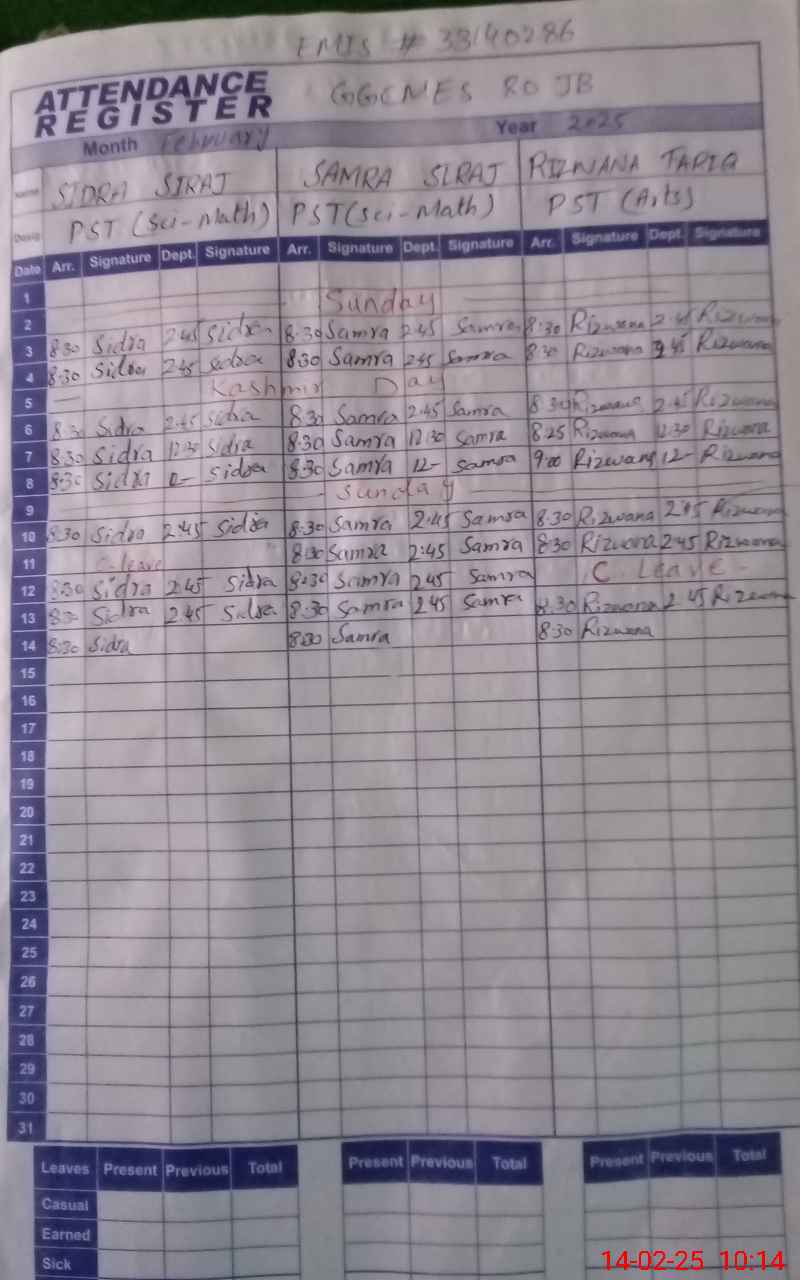 EMIS # 33140286
ATTENDANCE REGISTER
GGCMES RO JB
Month February Year 2025
Name SIDRA SIRAJ SAMRA SIRAJ RIZWANA TARIQ
Desig PST (Sci-Math) PST (Sci-Math) PST (Arts)
Date Arr. Signature Dept. Signature Arr. Signature Dept. Signature Arr. Signature Dept. Signature
1
2 Sunday
3 8:30 Sidra 2:45 Sidra 8:30 Samra 2:45 Samra 8:30 Rizwana 2:45 Rizwana
4 8:30 Sidra 2:45 Sidra 8:30 Samra 2:45 Samra 8:30 Rizwana 2:45 Rizwana
5 Kashmir Day
6 8:30 Sidra 2:45 Sidra 8:30 Samra 2:45 Samra 8:30 Rizwana 2:45 Rizwana
7 8:30 Sidra 12:30 Sidra 8:30 Samra 12:30 Samra 8:25 Rizwana 12:30 Rizwana
8 8:30 Sidra Sidra 8:30 Samra 12- Samra 9:00 Rizwana 12- Rizwana
9 Sunday
10 8:30 Sidra 2:45 Sidra 8:30 Samra 2:45 Samra 8:30 Rizwana 2:45 Rizwana
11 C-leave 8:30 Samra 2:45 Samra 8:30 Rizwana 2:45 Rizwana
12 8:30 Sidra 2:45 Sidra 8:30 Samra 2:45 Samra C. Leave -
13 8:30 Sidra 2:45 Sidra 8:30 Samra 2:45 Samra 8:30 Rizwana 2:45 Rizwana
14 8:30 Sidra 8:30 Samra 8:30 Rizwana
15
16
17
18
19
20
21
22
23
24
25
26
27
28
29
30
31
Leaves Present Previous Total Present Previous Total Present Previous Total
Casual
Earned
Sick
14-02-25 10:14